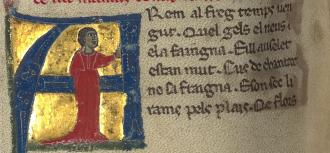 Rem al freg temps uen
gut. Quel gels el neus i
ela faingna. El auselet
estan mut. Cus de chantar
no si fraigna. Eson sec li
ram pels plais. Qe flors